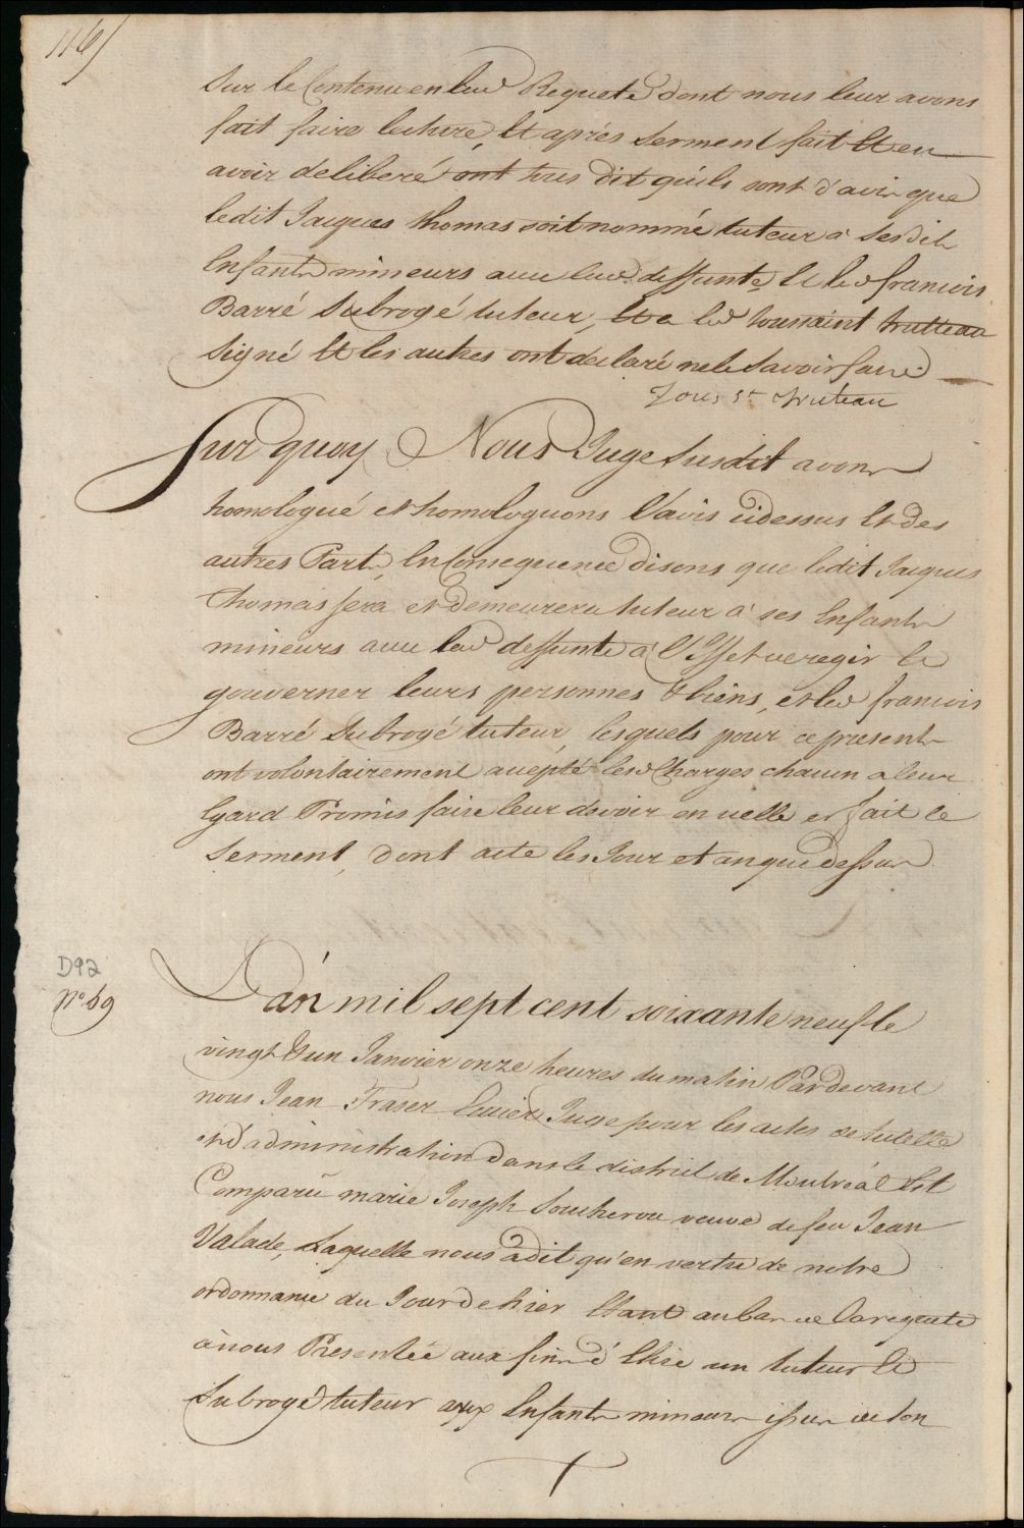 116/
Sur le Contenu en lad Requete dont nous leur avons
fait faire lecture, Et aprés Serment fait Et en
avoir deliberé ont tous dit qu'ils sont d'avis que
ledit Jacques thomas soit nommé tuteur a Sesdits
Enfants mineurs avec lad deffunte Et led francois
Barré Subrogé tuteur, Et a led toussaint trutteau
Signé Et les autres ont declaré ne le Savoir faire
Touss st truteau
Sur quoy Nous Juge Susdit avons
homologué et homologuons l'avis cidessus Et des
autres Parts, En Consequence disons que ledit Jacques
Thomas sera et demeurera tuteur a ses Enfants
mineurs avec lad deffunte a l'Effet de regir Et
gouverner leurs personnes & biens, et led francois
Barré Subrogé tuteur, lesquels pour ce presents
ont volontairement accepté lesd Charges chacun a leur
Egard Promis faire leur devoir en icelle et fait le
Serment, dont acte les Jour et an que dessus
D92
No. 59
L'an mil sept cent soixante neuf le
vingt & un Janvier onze heures du matin Pardevant
nous Jean Fraser Ecuier Juge pour les actes de tutelle
et d'administration dans le district de Montréal Est
Comparü marie Joseph Soucherou veuve de feu Jean
Valade, Laquelle nous a dit qu'en vertu de notre
ordonnance du Jour de hier Etant au bas de la requete
a nous Presentée aux fins d'Elire un tuteur Et
Subrogé tuteur aux Enfants mineurs issus de son